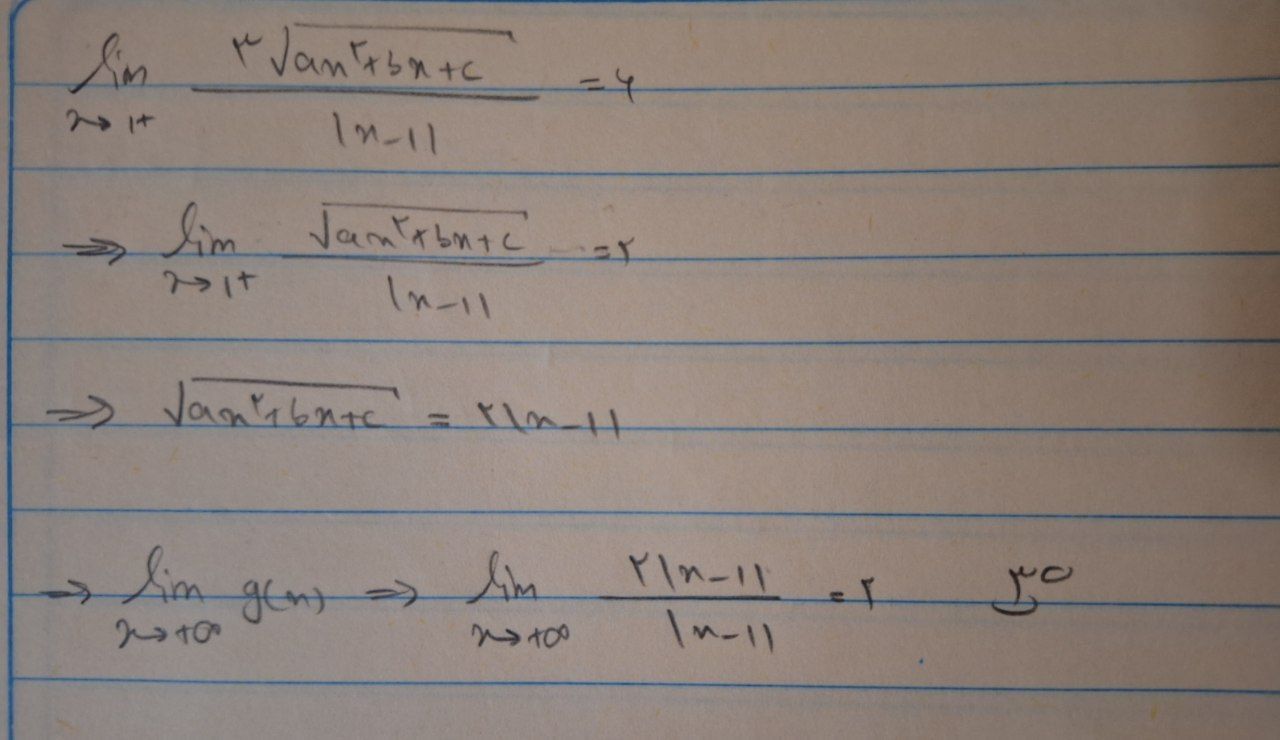 lim x→1+ ۳√(ax۲+bx+c) / |x-1| = ۶
⇒ lim x→1+ √(ax۲+bx+c) / |x-1| = ۲
⇒ √(ax۲+bx+c) = ۲|x-1|
⇒ lim x→+∞ g(x) ⇒ lim x→+∞ ۲|x-1| / |x-1| = ۲